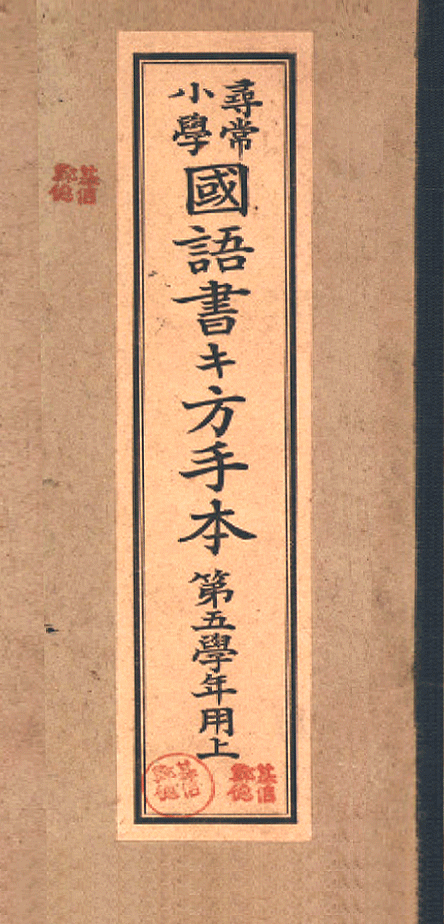 尋常
小學
國語書キ方手本
第五學年用上